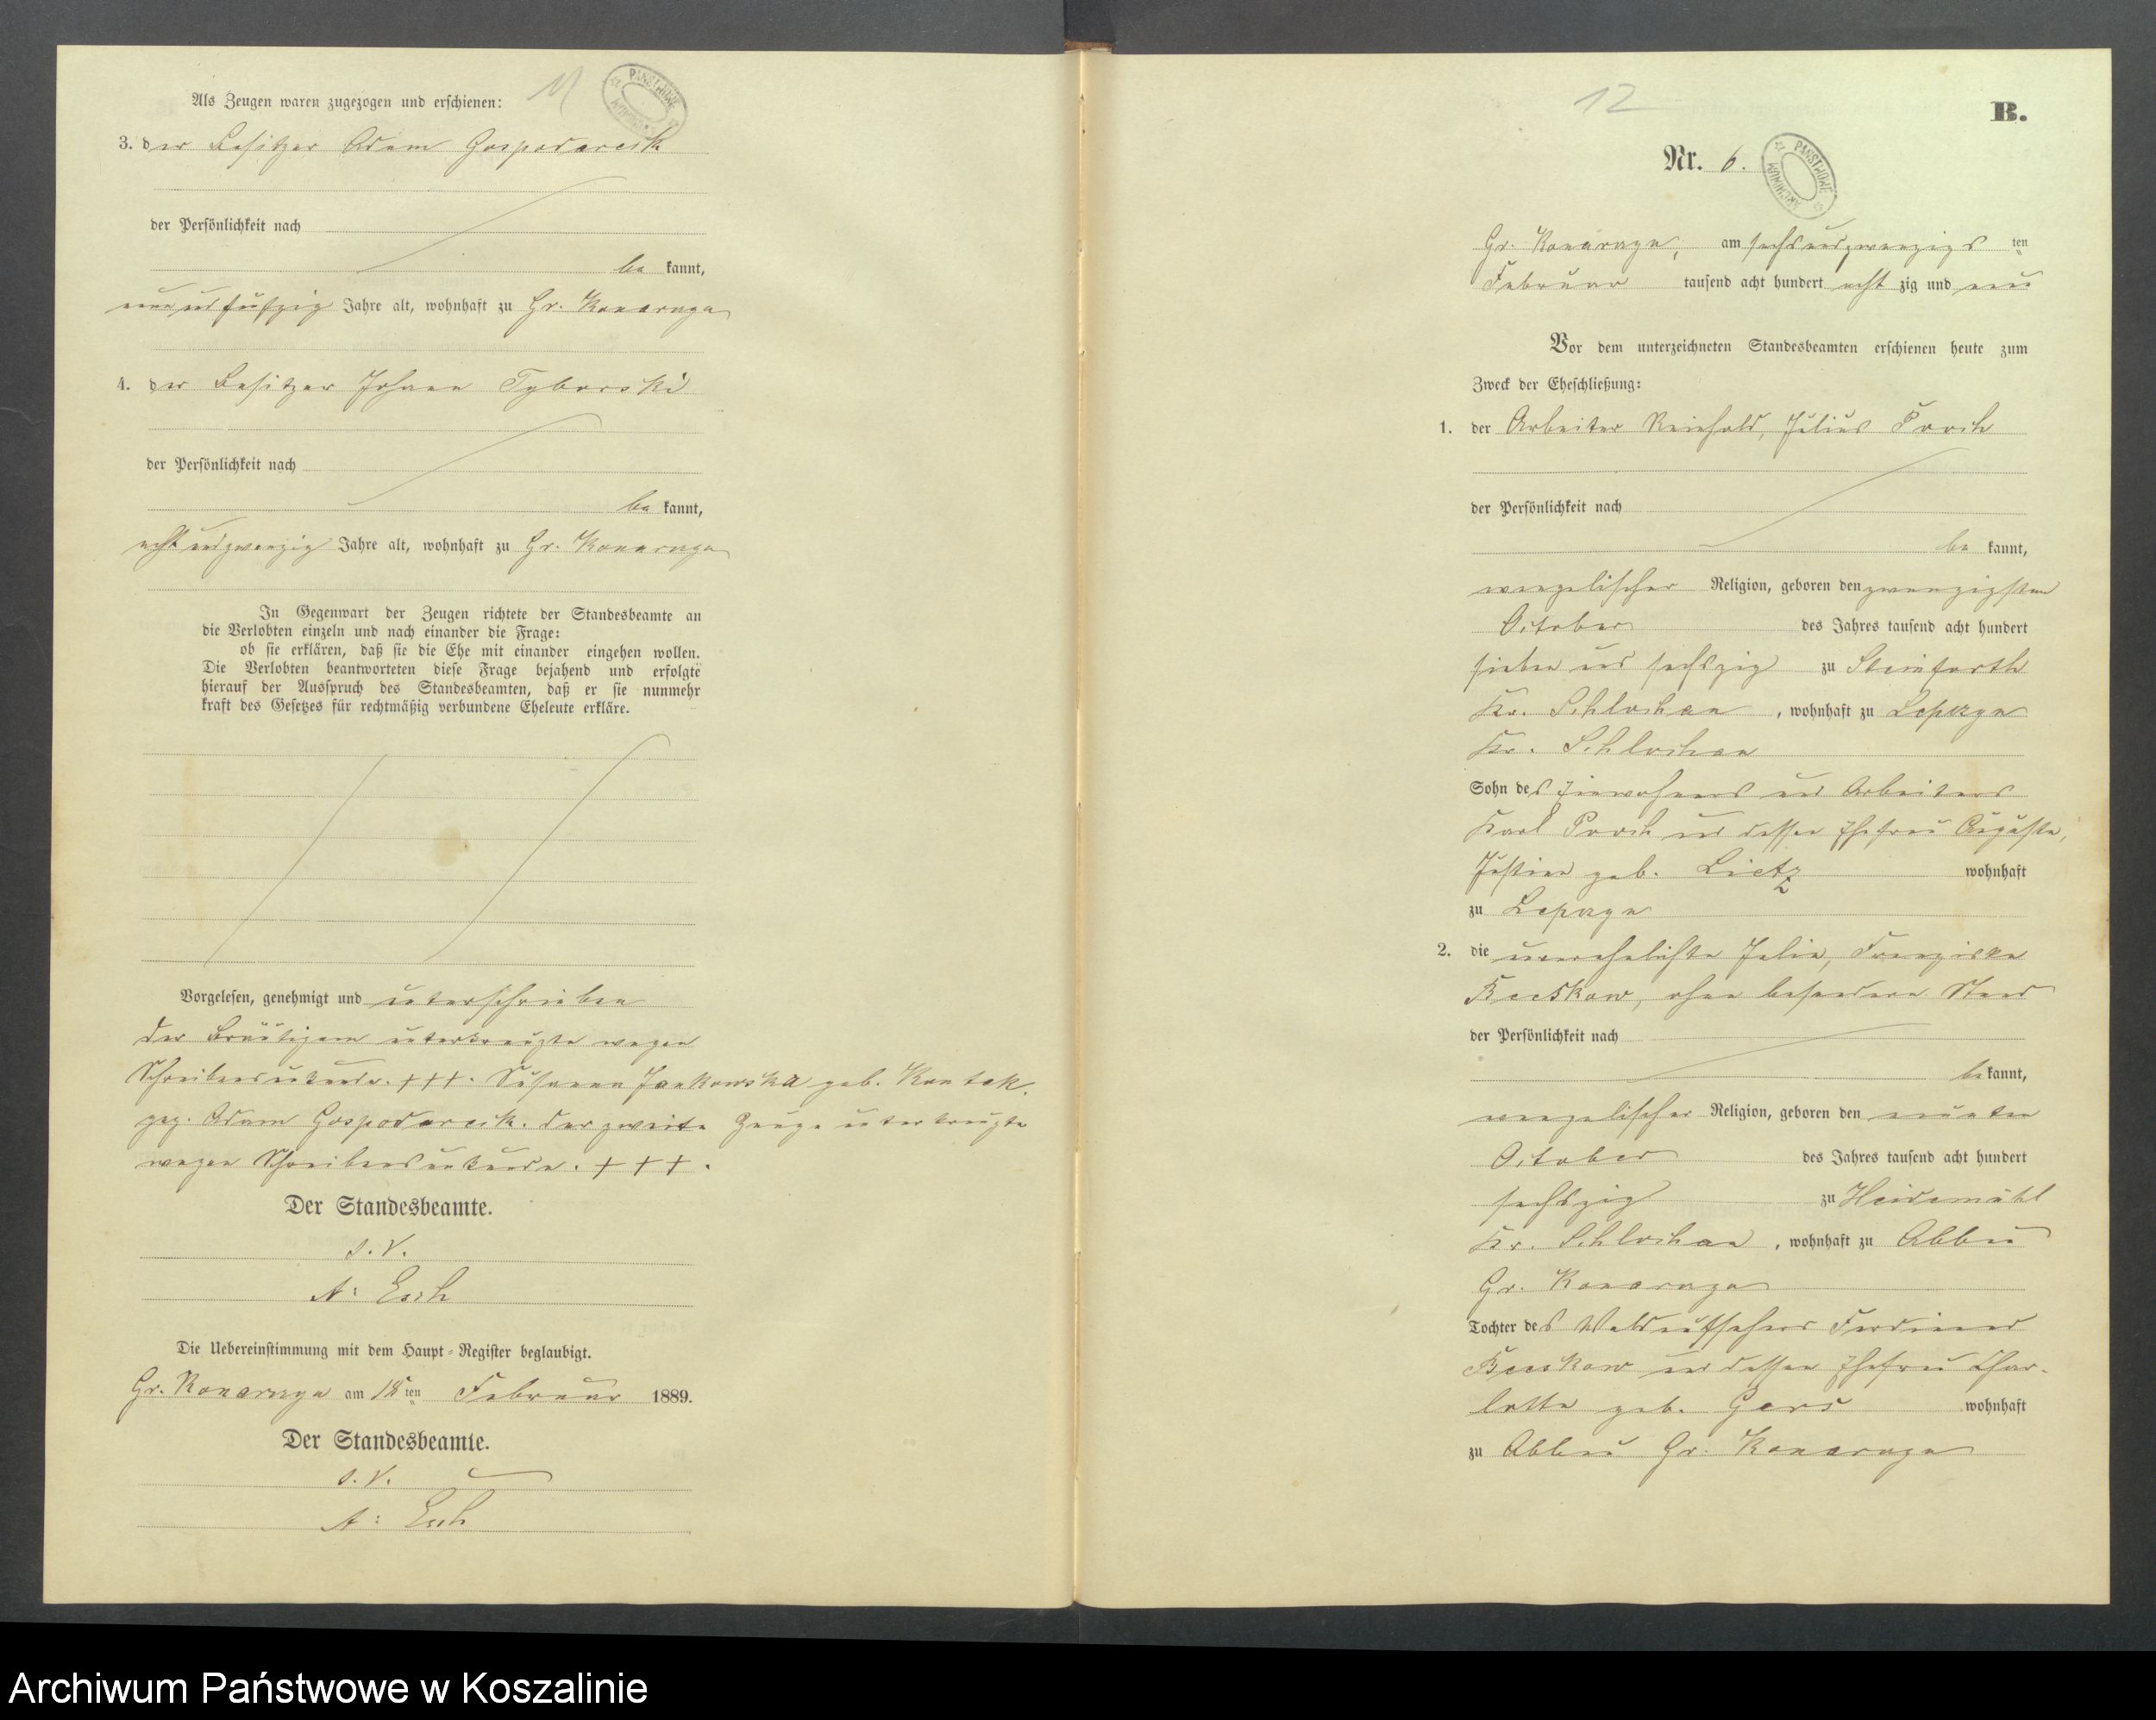 Als Zeugen waren zugezogen und erschienen:
11
PAŃSTWOWE ARCHIWUM
3. der Besitzer Adam Gospodarczik
der Persönlichkeit nach
be kannt,
neun und fünfzig Jahre alt, wohnhaft zu Gr. Konarzyn
4. der Besitzer Johann Tyborski
der Persönlichkeit nach
be kannt,
acht und zwanzig Jahre alt, wohnhaft zu Gr. Konarzyn
In Gegenwart der Zeugen richtete der Standesbeamte an
die Verlobten einzeln und nach einander die Frage:
ob sie erklären, daß sie die Ehe mit einander eingehen wollen.
Die Verlobten beantworteten diese Frage bejahend und erfolgte
hierauf der Ausspruch des Standesbeamten, daß er sie nunmehr
kraft des Gesetzes für rechtmäßig verbundene Eheleute erkläre.
Vorgelesen, genehmigt und unterschrieben
Der Bräutigam unterkreuzte wegen
Schreibensunkunde. +++. Susanna Jankowska geb. Kantak.
gez. Adam Gospodarczik. Der zweite Zeuge unterkreuzte
wegen Schreibensunkunde. +++.
Der Standesbeamte.
s. V.
A: Esch
Die Uebereinstimmung mit dem Haupt-Register beglaubigt.
Gr. Konarzyn am 18 ten Februar 1889.
Der Standesbeamte.
s. V.
A: Esch
12
B.
Nr. 6.
PAŃSTWOWE ARCHIWUM
Gr. Konarzyn, am sechsundzwanzigs ten
Februar tausend acht hundert acht zig und neun
Vor dem unterzeichneten Standesbeamten erschienen heute zum
Zweck der Eheschließung:
1. der Arbeiter Reinhold, Julius Poosch
der Persönlichkeit nach
be kannt,
evangelischer Religion, geboren den zwanzigsten
October des Jahres tausend acht hundert
sieben und sechszig zu Steinforth
Kr. Schlochau, wohnhaft zu
Kr. Schlochau
Sohn des Einwohners und Arbeiters
Karl und dessen Ehefrau Auguste,
Justine geb. Lietz wohnhaft
zu
2. die unverehelichte Julie, Franziska
ohne besondern Stand
der Persönlichkeit nach
be kannt,
evangelischer Religion, geboren den neunten
October des Jahres tausend acht hundert
sechszig zu Heidemühl
Kr. Schlochau, wohnhaft zu Abbau
Gr. Konarzyn
Tochter des Waldaufsehers Ferdinand
und dessen Ehefrau Char-
lotte geb. wohnhaft
zu Abbau Gr. Konarzyn
Archiwum Państwowe w Koszalinie